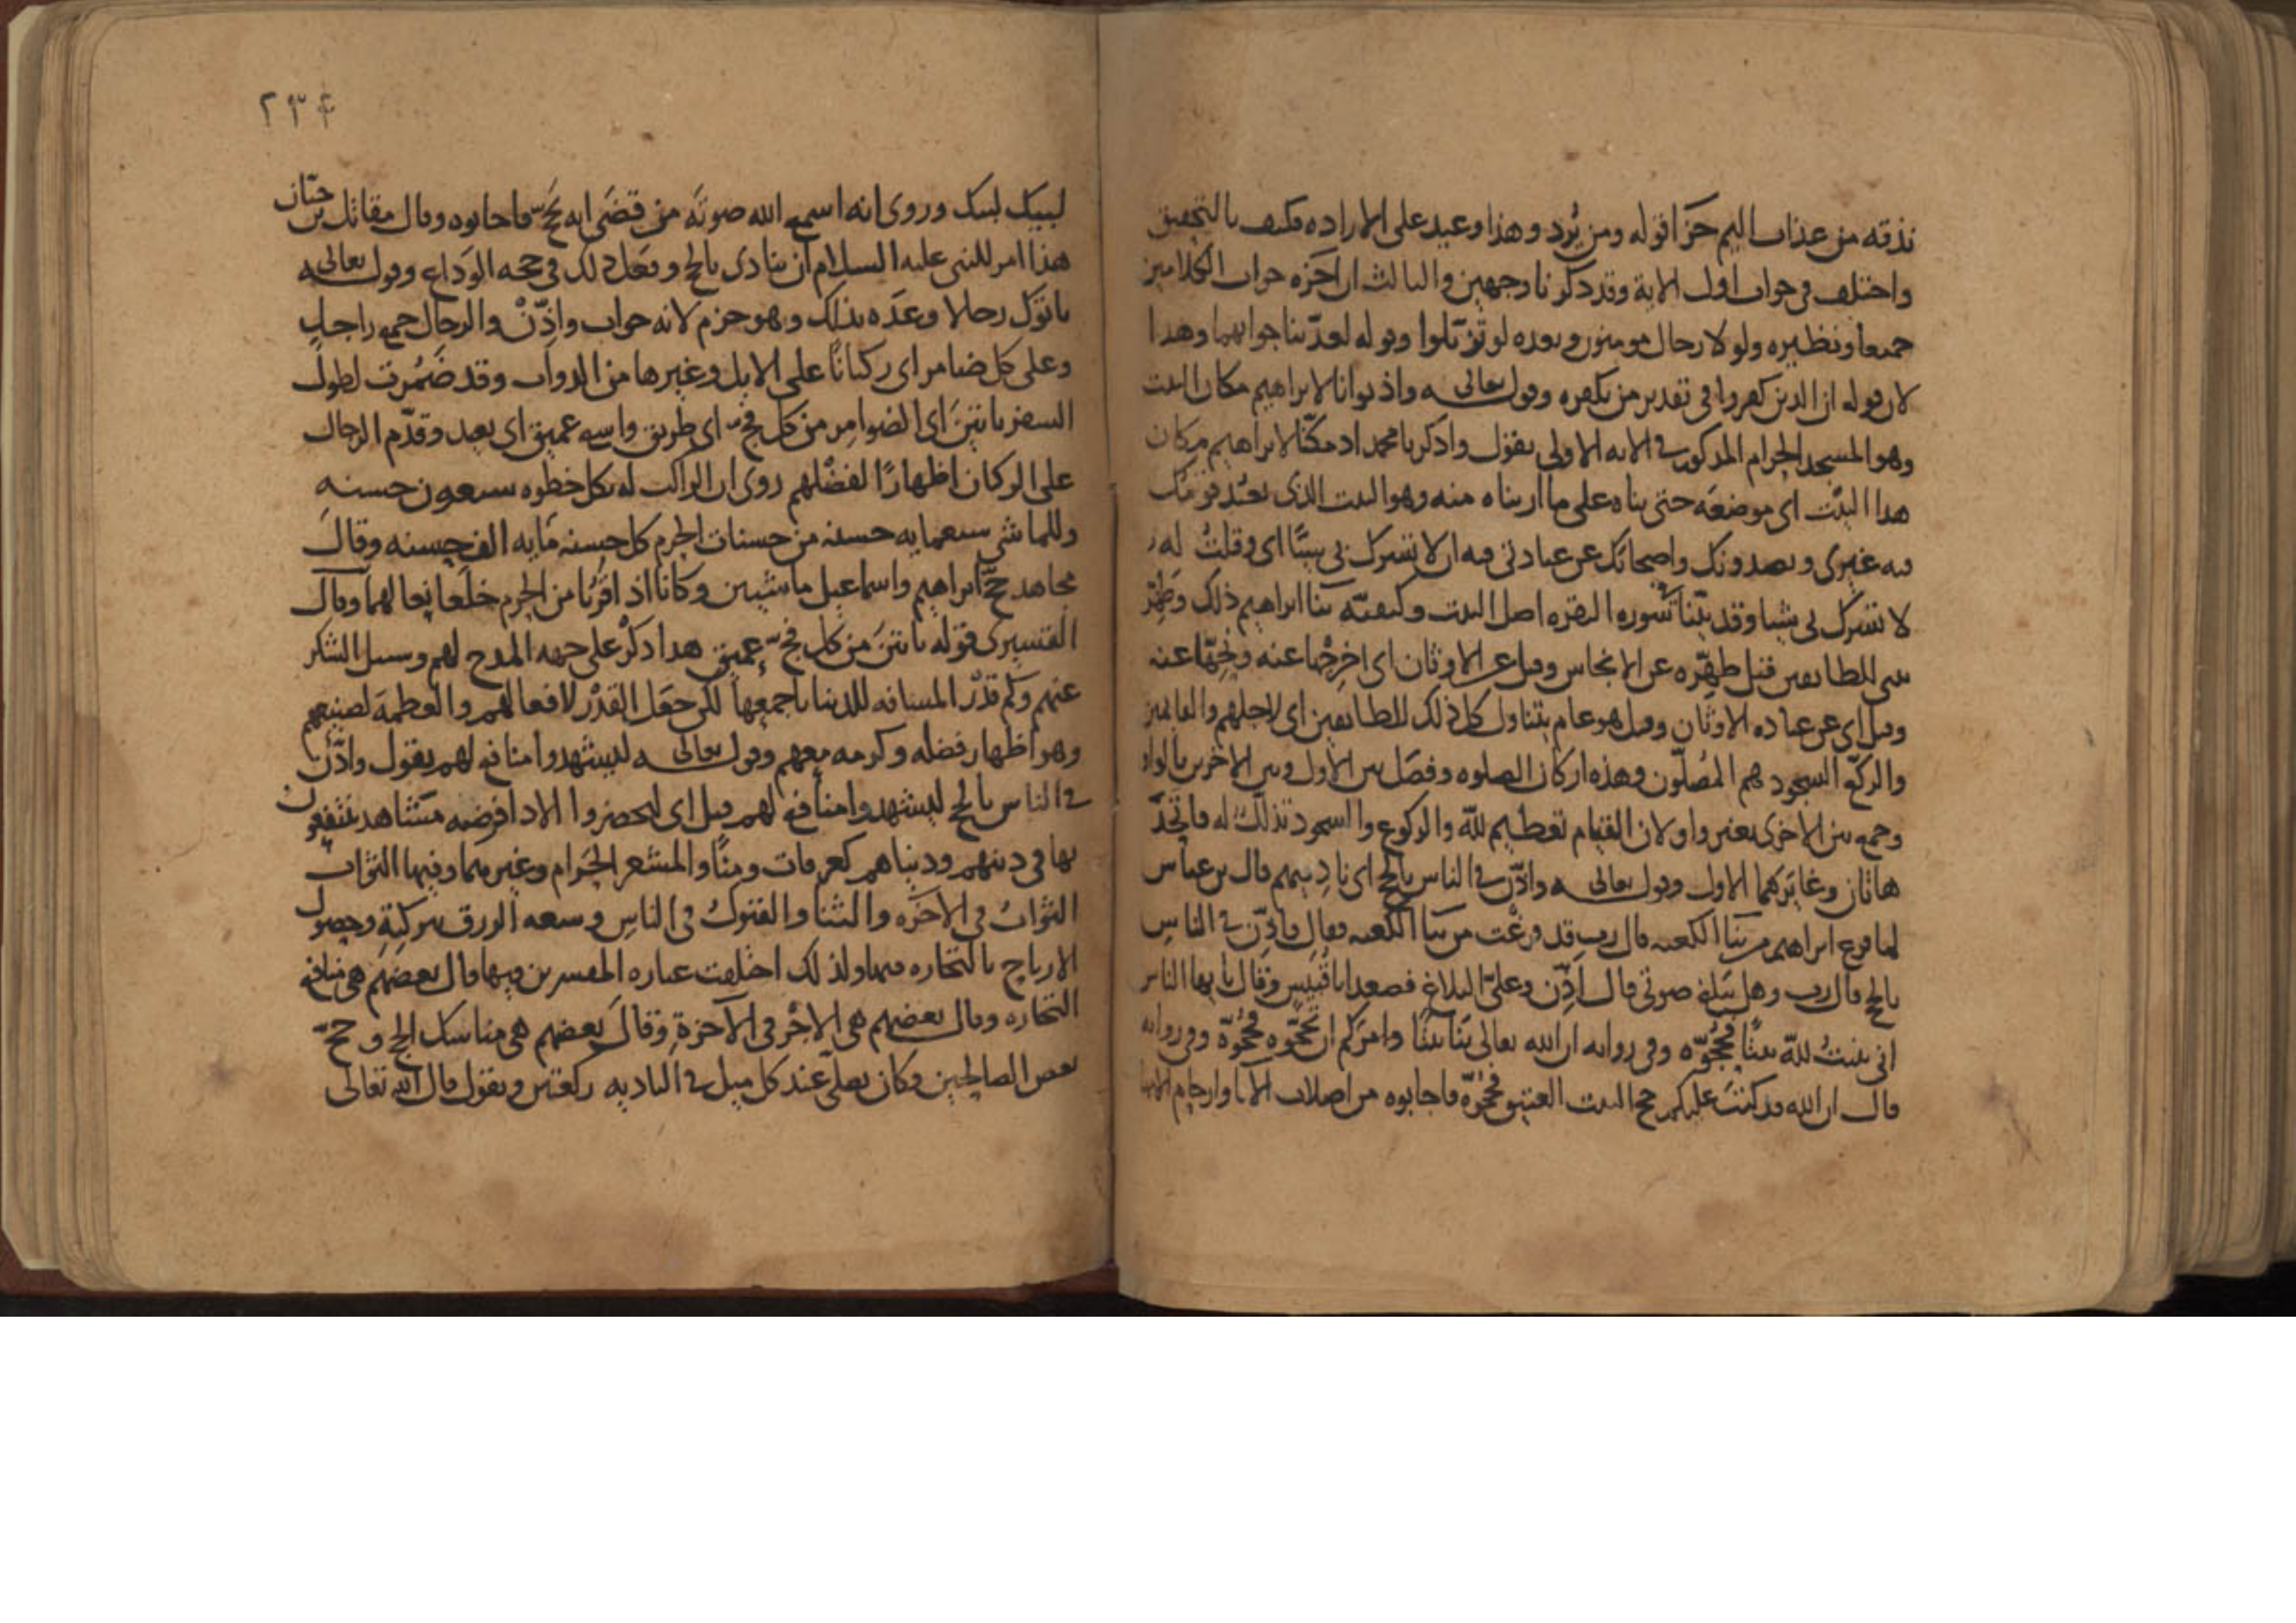 نذقه من عذاب اليم جزا قوله ومن يُرد وهذا وعيد على الاراده فكيف بالتحقيق
واختلف في جواب اول الاية وقد ذكرنا وجهين والثالث ان اخره جواب الكلامين
جميعا ونظيره ولولا رجال مومنون وبعده لو تزيّلوا وقوله لعذّبنا جوابهما وهذا
لان قوله ان الذين كفروا في تقدير من يكفره وقوله تعالى واذ بوانا لابراهيم مكان البيت
وهو المسجد الحرام المذكور في الايه الاولى يقول واذكر يا محمد اذ مكنّا لابراهيم مكان
هذا البيت اى موضعَه حتى بناه على ما اريناه منه وهو البيت الذى يعبُد قومك
فيه غيرى ويصدونك واصحابك عن عبادتى فيه ان لا تشرك بى شيئًا اى وقلتُ له
لا تشرك بى شيئا وقد بيّنا فى سُوره البقره اصل البيت وكيفيّه بنا ابراهيم ذلك وطهّر
بيتى للطايفين قيل طهِّره عن الانجاس وقيل عن الاوثان اى اخرِجْها عنه ونحِّها عنه
وقيل اى عن عباده الاوثان وقيل هو عام يتناول كل ذلك للطايفين اى لاجلهم والقايمين
والركّع السجود هم المُصلّون وهذه اركان الصلوه وفصَل بين الاول وبين الاخرين بالواو
وجمع بين الاخرى بغير واو لان القيام تعظيم للّه والركوع والسجود تذلّلٌ له فاتّحدَ
هاتان وغايَرَهما الاول وقوله تعالى واذّن فى الناس بالحج اى نادِ فيهم قال بن عباس
لما فرغ ابراهيم من بنَا الكعبه قال رب قد فرغْت من بنا الكعبه فقال فاذّن فى الناس
بالحج قال رب وهل يَبلغ صوتى قال اَذِّن وعلىّ البلاغ فصعد ابا قُبَيسٍ وقال يا ايها الناس
انى بنيتُ للّه بيتًا فحُجّوه وفى روايه ان الله تعالى بَنا بيتًا وامرَكم ان تحجّوه فحُجّوه وفى روايه
قال ان الله قد كتبَ عليكم حج البيت العتيق فحُجّوه فاجابوه من اصلاب الابا وارحام الامهات
٢٣٤
لبيك لبيك وروى انه اسمع الله صوتَه من قضَى انه يَحُجّ فاجابوه وقال مقاتل بن حيّان
هذا امر للنبى عليه السلام ان ينادى بالحج وفعَل ذلك فى حجه الوَداع وقوله تعالى
ياتوك رجالا وعَده بذلك وهو جزم لانه جواب واذّنْ والرجال جمع راجل
وعلى كل ضامر اى ركبانًا على الابل وغيرها من الدواب وقد ضَمُرت لطول
السفر ياتينَ اى الضوامِر من كل فجّ اى طريق واسع عميق اى بعيد وقدّم الرجال
على الركبان اظهارًا لفضْلهم روى ان الراكب له بكل خطوه سبعون حسنه
وللماشى سبعمايه حسنه من حسنات الحرم كل حسنه مَايه الف حسنه وقال
مجاهد حجّ ابراهيم واسماعيل ماشيين وكانا اذا قرُبا من الحرم خلَعا نِعالهما وقال
القشيرى قوله ياتينَ من كل فجّ عميق هذا ذكرٌ على جهه المدح لهم وسبيل الشكر
عنهم وكم قدْر المسافه للدنيا باجمعِها لكن جعَل القدْر لافعالهم والعظمهَ لصنيعهم
وهو اظهار فضله وكرمه معهم وقوله تعالى ليشهدوا منافع لهم يقول واذّن
فى الناس بالحج ليشهدوا منافع لهم قيل اى ليحضروا الادا فرضه مَشاهد ينتفعون
بها فى دينهم ودنياهم كعرفات ومنًا والمشعر الحَرام وغيرهما وفيها الثواب
الثوابُ فى الاخَره والثنا والقبولُ فى الناسِ وسعه الرزق ببركتِهِ وحصول
الارباح بالتجاره فيها ولذلك اختلفت عباره المفسرين فيها قال بعضَهُم هى منافع
التجاره وقال بعضهم هى الاجْر فى الآخرةِ وقالَ بعضهم هى مناسك الحج وحجّ
بعض الصالحين وكان يصلّى عند كل ميل فى الباديه ركعتين ويقول قال الله تعالى